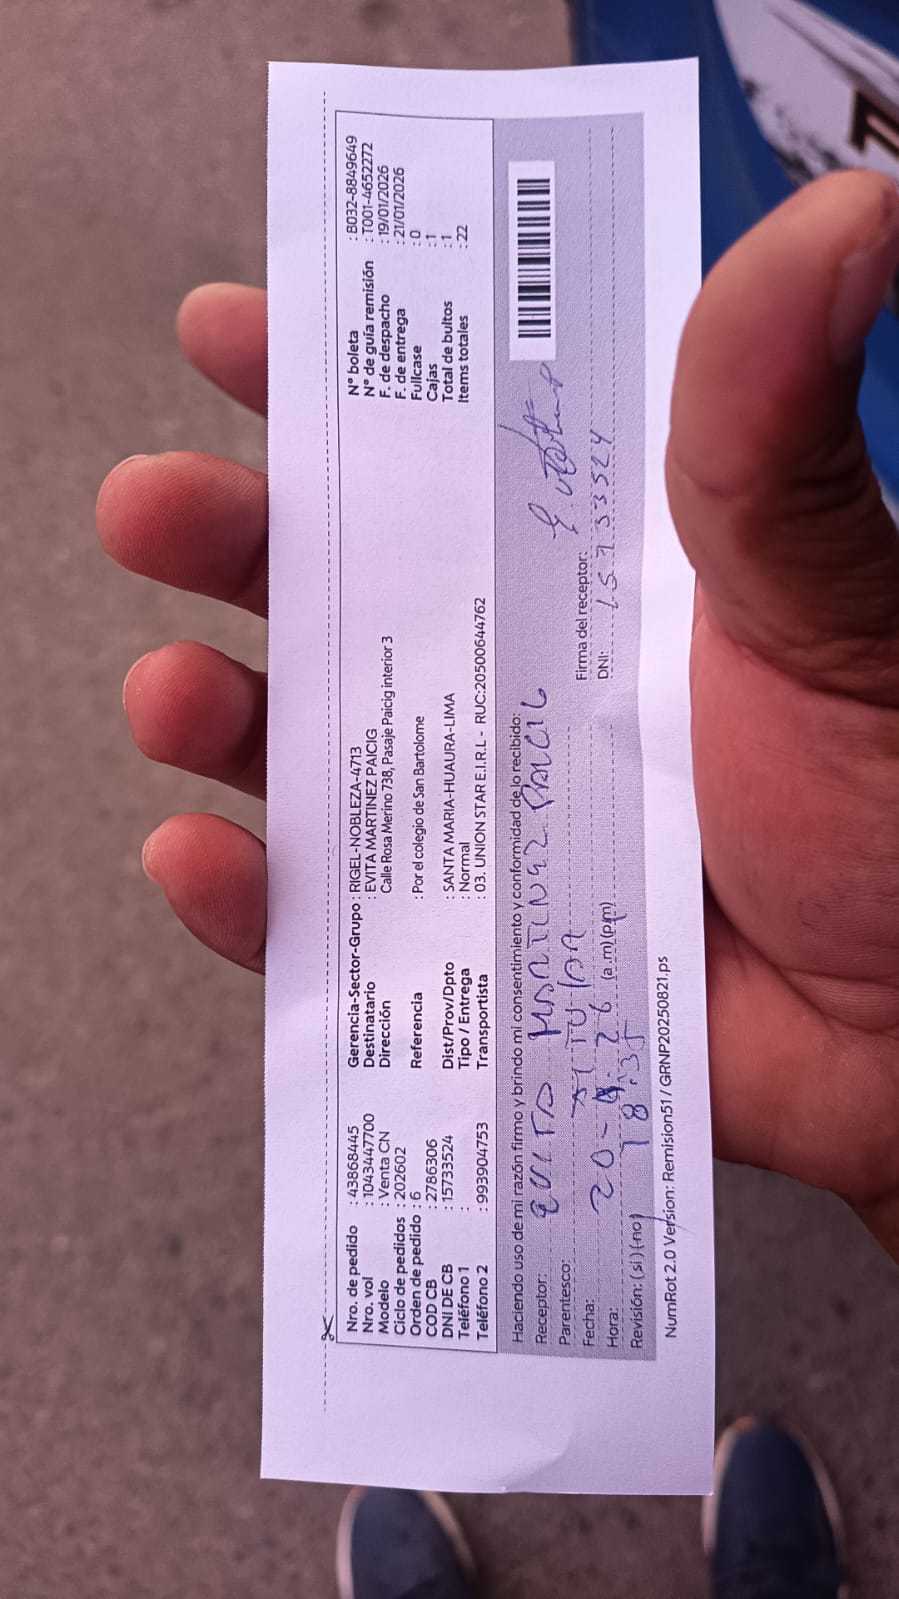 Nro. de pedido : 43868445
Nro. vol : 1043447700
Modelo : Venta CN
Ciclo de pedidos : 202602
Orden de pedido : 6
COD CB : 2786306
DNI DE CB : 15733524
Teléfono 1 :
Teléfono 2 : 993904753
Gerencia-Sector-Grupo : RIGEL-NOBLEZA-4713
Destinatario : EVITA MARTINEZ PAICIG
Dirección Calle Rosa Merino 738, Pasaje Paicig interior 3
Referencia : Por el colegio de San Bartolome
Dist/Prov/Dpto : SANTA MARIA-HUAURA-LIMA
Tipo / Entrega : Normal
Transportista : 03. UNION STAR E.I.R.L - RUC:20500644762
N° boleta : B032-8849649
N° de guía remisión : T001-4652272
F. de despacho : 19/01/2026
F. de entrega : 21/01/2026
Fullcase : 0
Cajas : 1
Total de bultos : 1
Items totales : 22
Haciendo uso de mi razón firmo y brindo mi consentimiento y conformidad de lo recibido:
Receptor: EVITA MARTINEZ PAICIG
Parentesco:
Fecha: 20- 26
Hora: 18:35 (a.m)(p.m)
Revisión: (si) (no)
Firma del receptor:
DNI: 15733524
NumRot 2.0 Version: Remision51 / GRNP20250821.ps